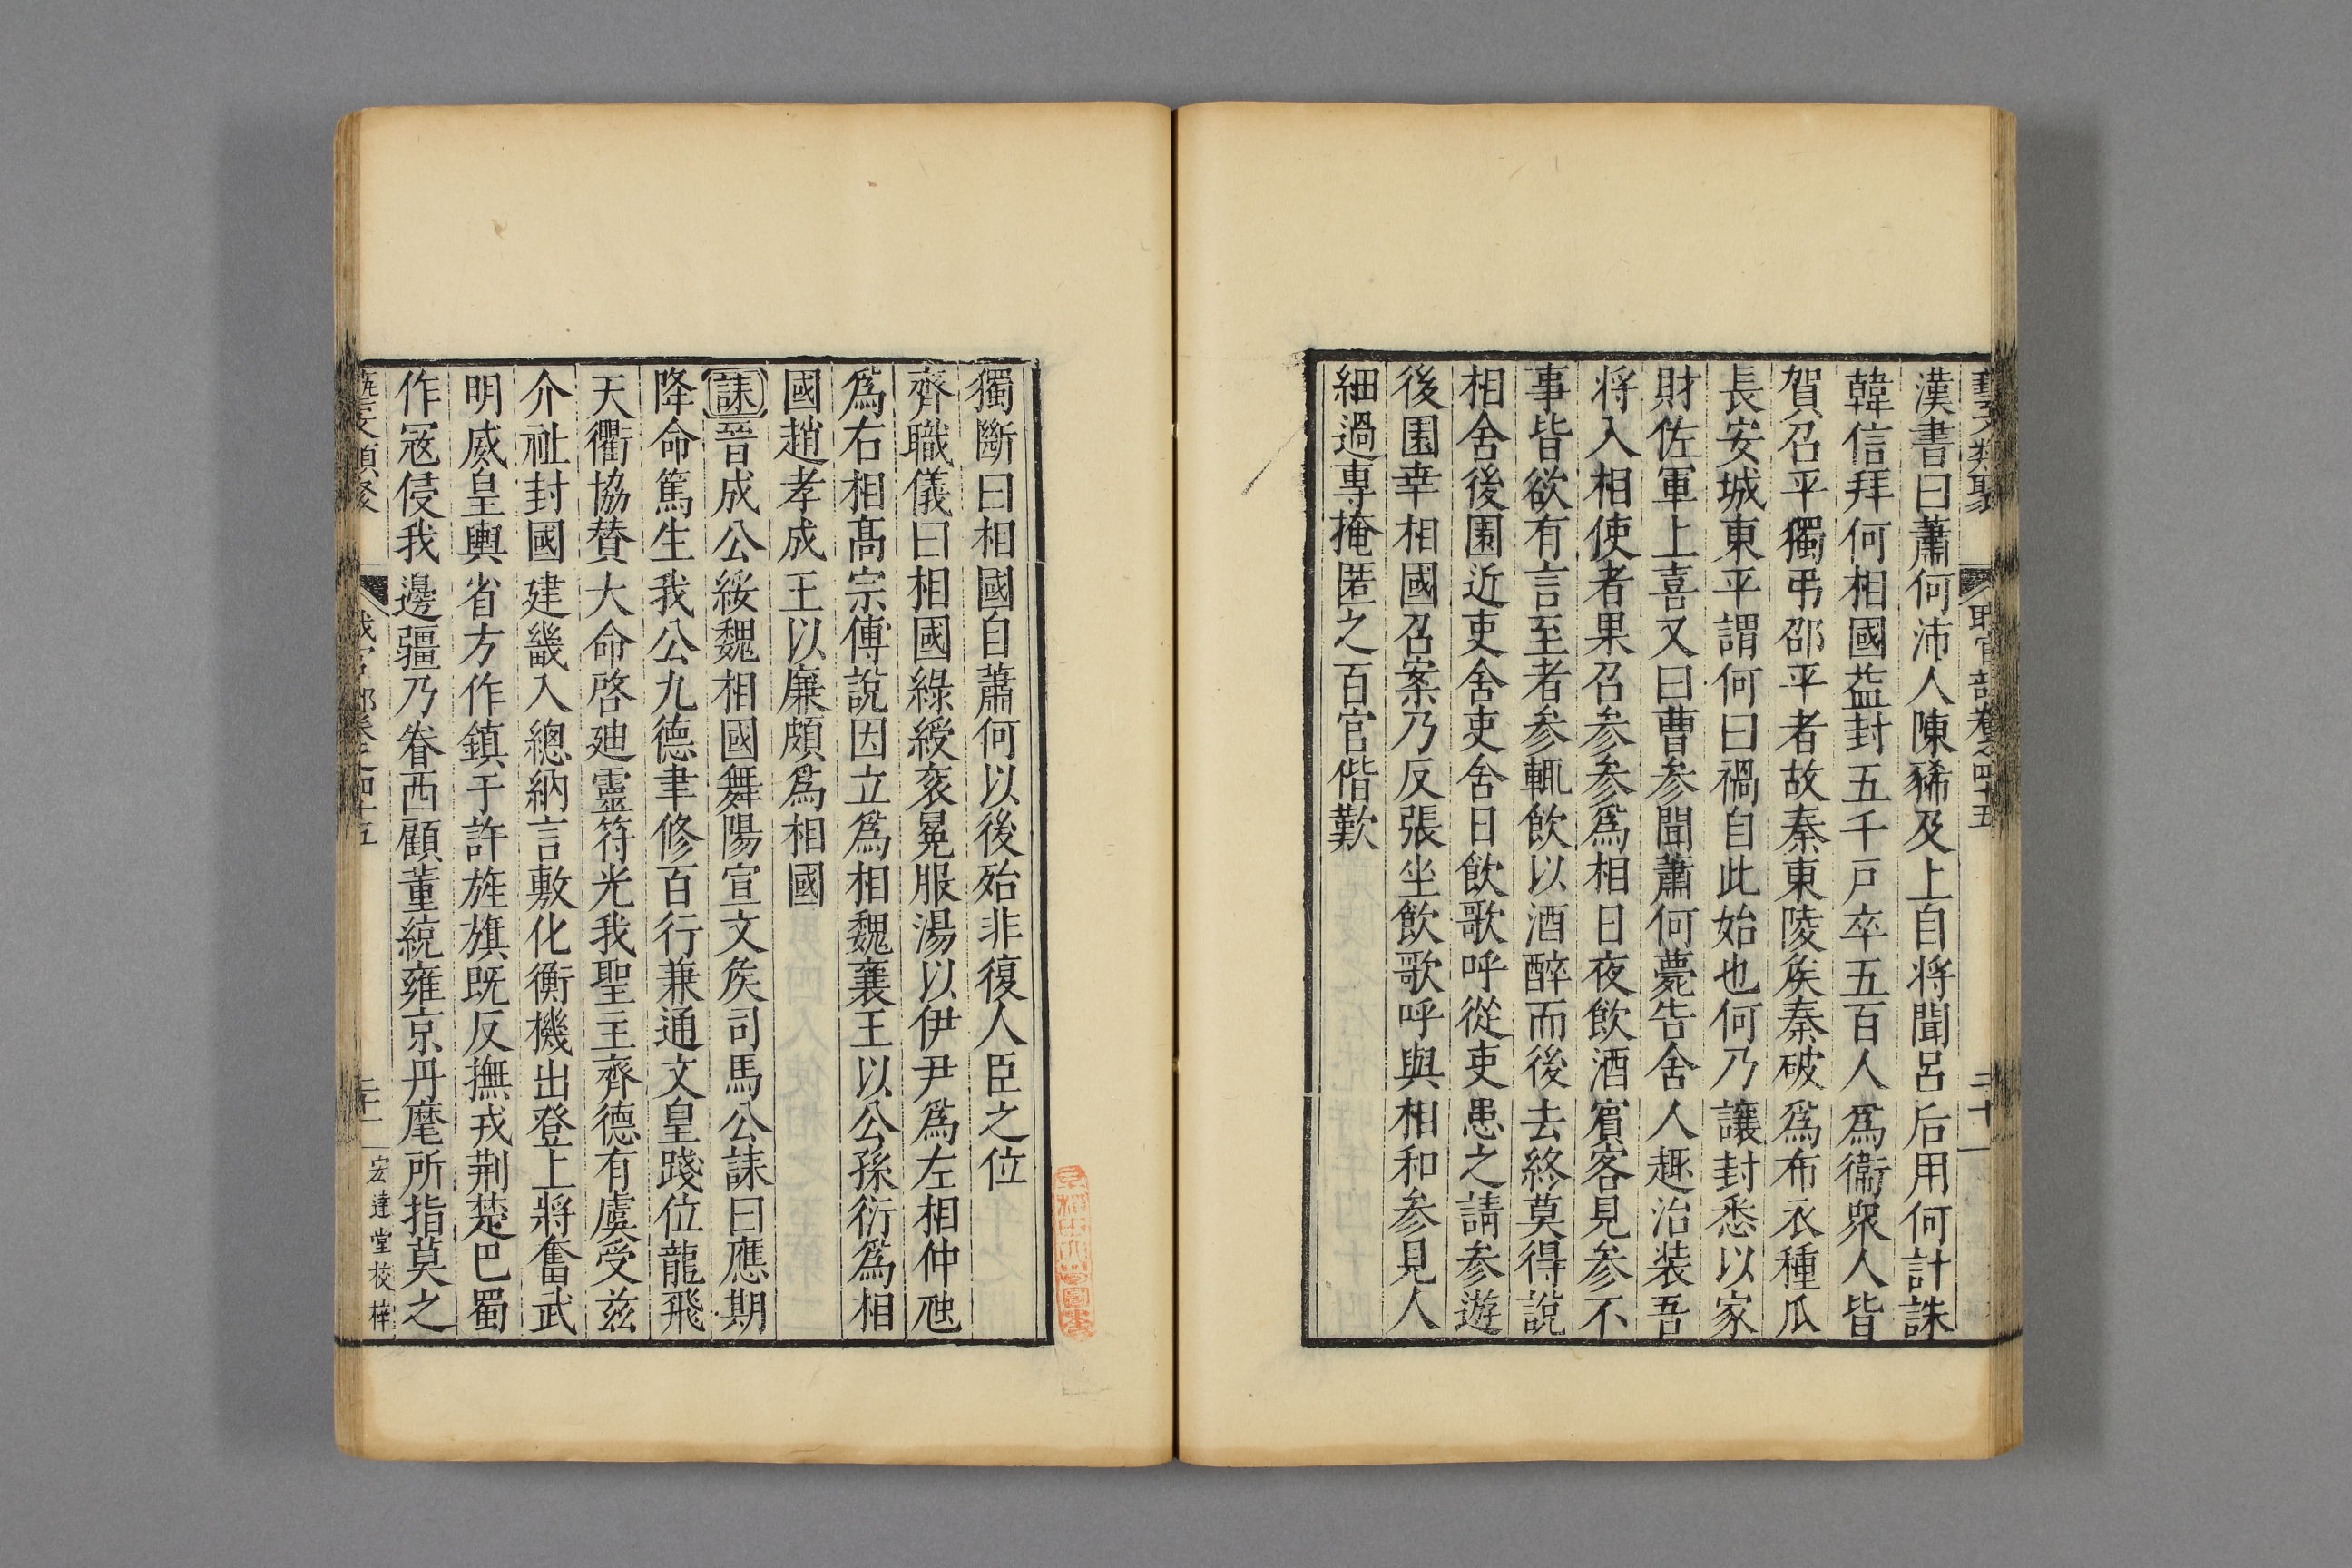 藝文類聚 職官部卷之四十五 二十一
漢書曰蕭何沛人陳豨及上自將聞呂后用何計誅
韓信拜何相國益封五千戸卒五百人爲衞衆人皆
賀召平獨弔邵平者故秦東陵矦秦破爲布衣種瓜
長安城東平謂何曰禍自此始也何乃讓封悉以家
財佐軍上喜又曰曹参聞蕭何薨告舍人趣治装吾
將入相使者果召参参爲相日夜飲酒賓客見参不
事皆欲有言至者参輒飲以酒醉而後去終莫得說
相舍後園近吏舍吏舍日飲歌呼從吏患之請参遊
後園幸相國召案乃反張坐飲歌呼與相和参見人
細過專掩匿之百官偕歎
獨斷曰相國自蕭何以後殆非復人臣之位
齊職儀曰相國綠綬衮冕服湯以伊尹爲左相仲虺
爲右相髙宗傅說因立爲相魏襄王以公孫衍爲相
國趙孝成王以廉頗爲相國
誄晉成公綏魏相國舞陽宣文矦司馬公誄曰應期
降命篤生我公九德聿修百行兼通文皇踐位龍飛
天衢協賛大命啓廸靈符光我聖主齊德有虞受兹
介祉封國建畿入總納言敷化衡機出登上將奮武
明威皇輿省方作鎮于許旌旗既反撫戎荆楚巴蜀
作冦侵我邊疆乃眷西顧董統雍京丹麾所指莫之
藝文類聚 職官部卷之四十五 二十一 宏達堂校梓